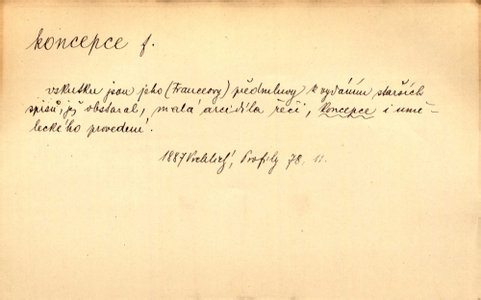 koncepce f.
vskutku jsou jeho (Franceovy) předmluvy k vydáním starších
spisů, jež obstaral, malá arcidíla řeči, koncepce i umě-
leckého provedení.
1887 Vrchlický, Profily 78. 11.